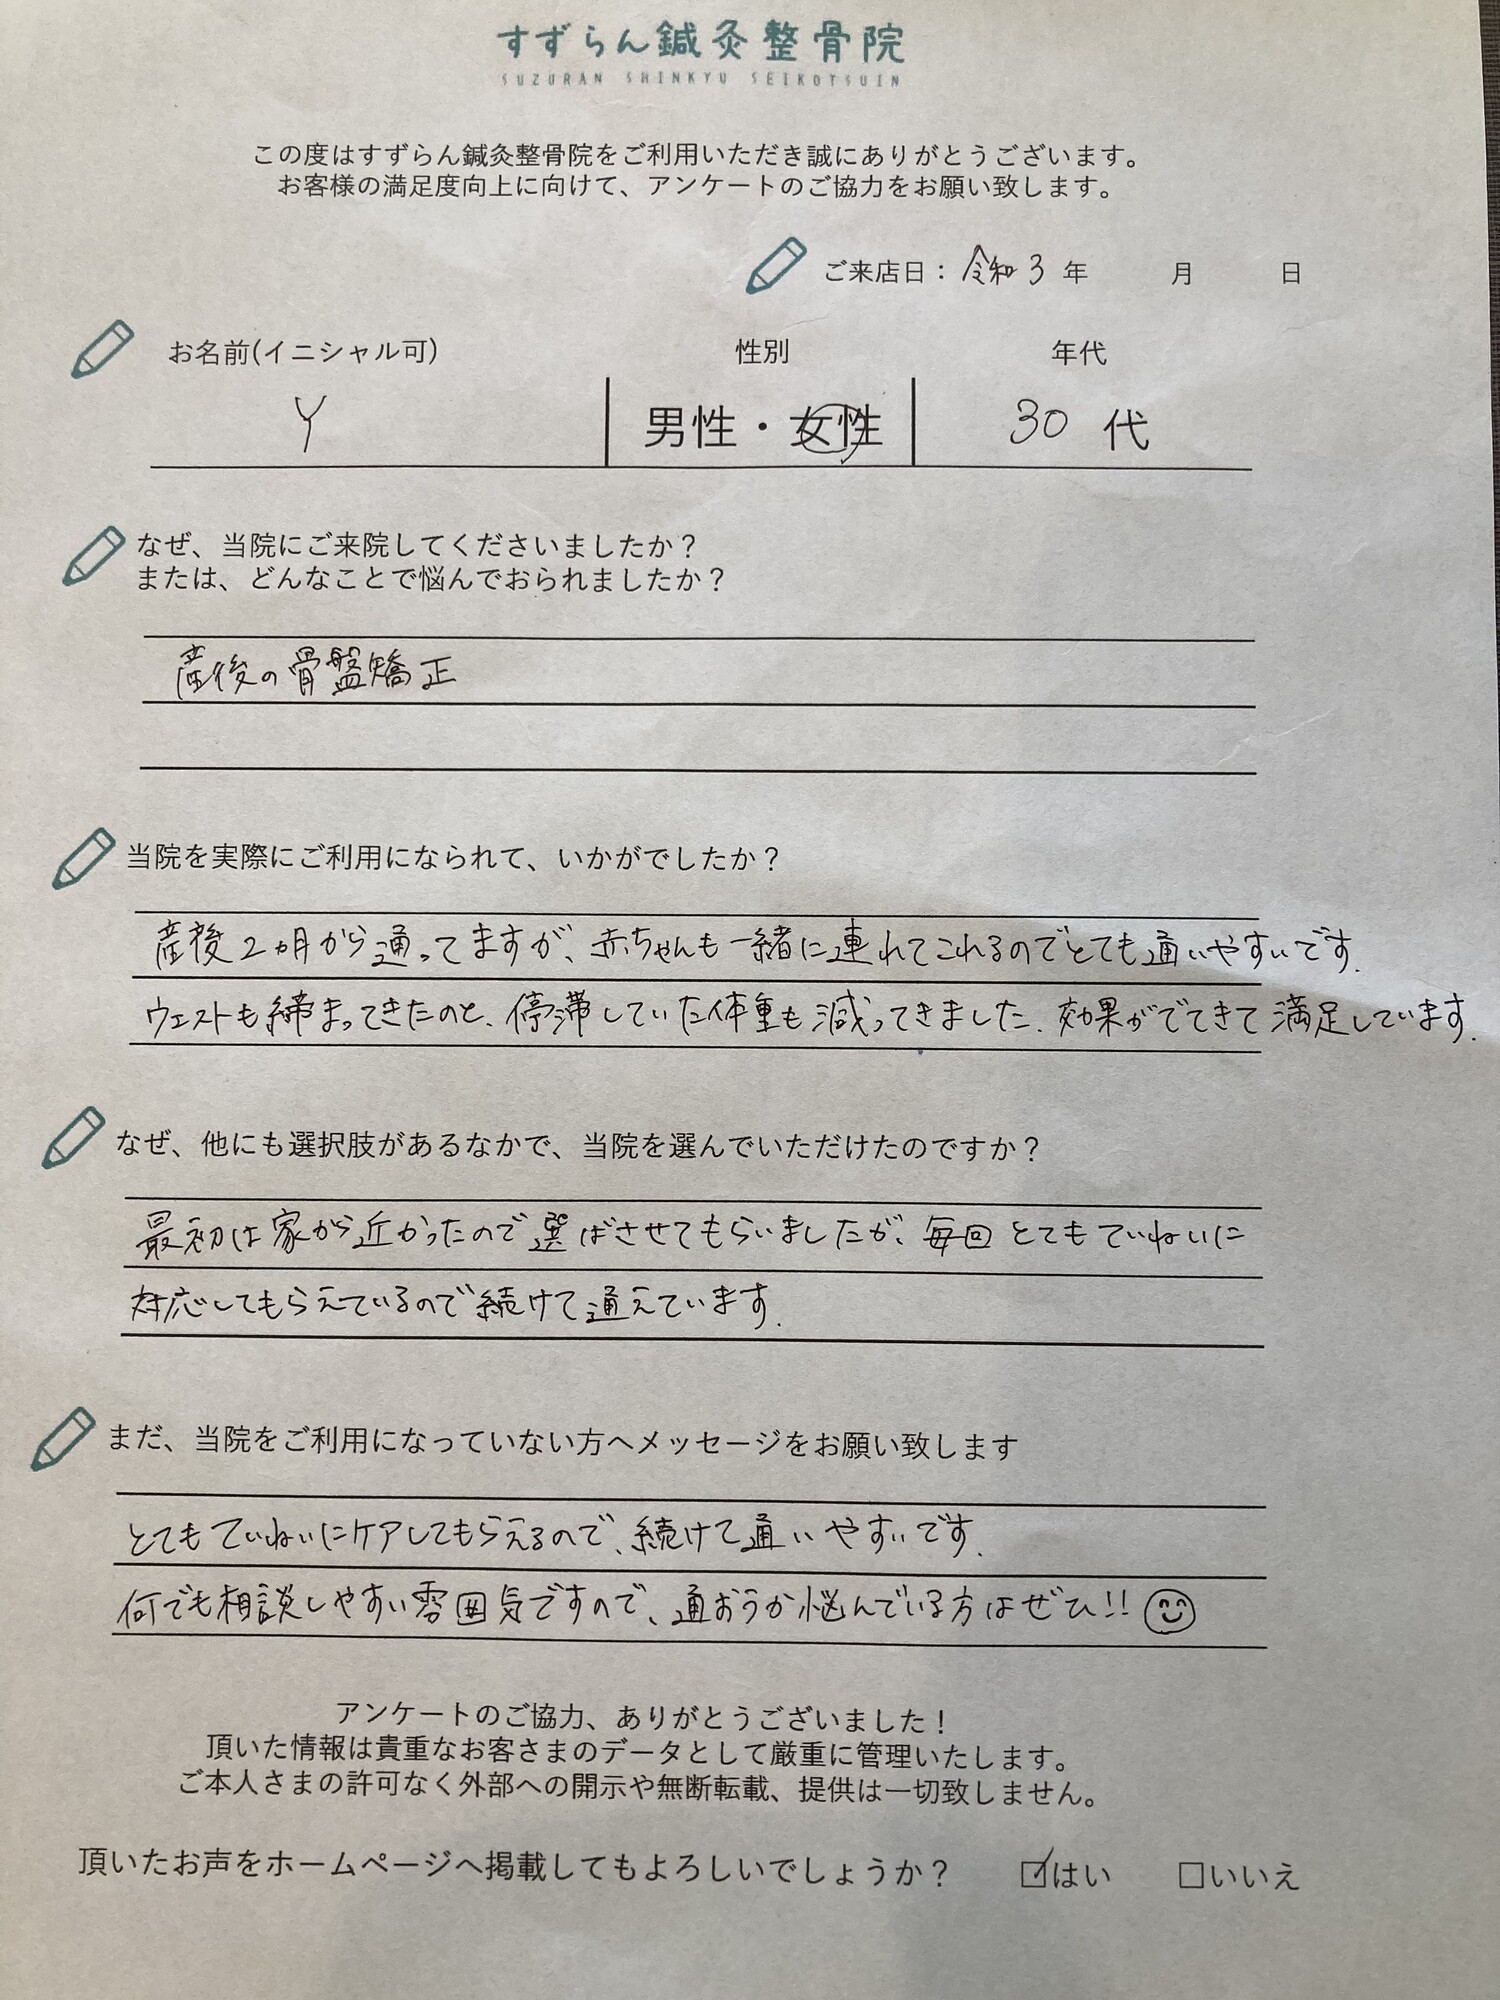 すずらん鍼灸整骨院
SUZURAN SHINKYU SEIKOTSUIN
この度はすずらん鍼灸整骨院をご利用いただき誠にありがとうございます。
お客様の満足度向上に向けて、アンケートのご協力をお願い致します。
ご来店日：令和3年 月 日
お名前(イニシャル可) 性別 年代
Y 男性・女性 30代
なぜ、当院にご来院してくださいましたか？
または、どんなことで悩んでおられましたか？
産後の骨盤矯正
当院を実際にご利用になられて、いかがでしたか？
産後2ヵ月から通ってますが、赤ちゃんも一緒に連れてこれるのでとても通いやすいです.
ウエストも締まってきたのと、停滞していた体重も減ってきました. 効果がでてきて満足しています.
なぜ、他にも選択肢があるなかで、当院を選んでいただけたのですか？
最初は家から近かったので選ばさせてもらいましたが、毎回とてもていねいに
対応してもらえているので続けて通えています.
まだ、当院をご利用になっていない方へメッセージをお願い致します
とてもていねいにケアしてもらえるので、続けて通いやすいです.
何でも相談しやすい雰囲気ですので、通おうか悩んでいる方はぜひ!!
アンケートのご協力、ありがとうございました！
頂いた情報は貴重なお客さまのデータとして厳重に管理いたします。
ご本人さまの許可なく外部への開示や無断転載、提供は一切致しません。
頂いたお声をホームページへ掲載してもよろしいでしょうか？ ☑はい □いいえ